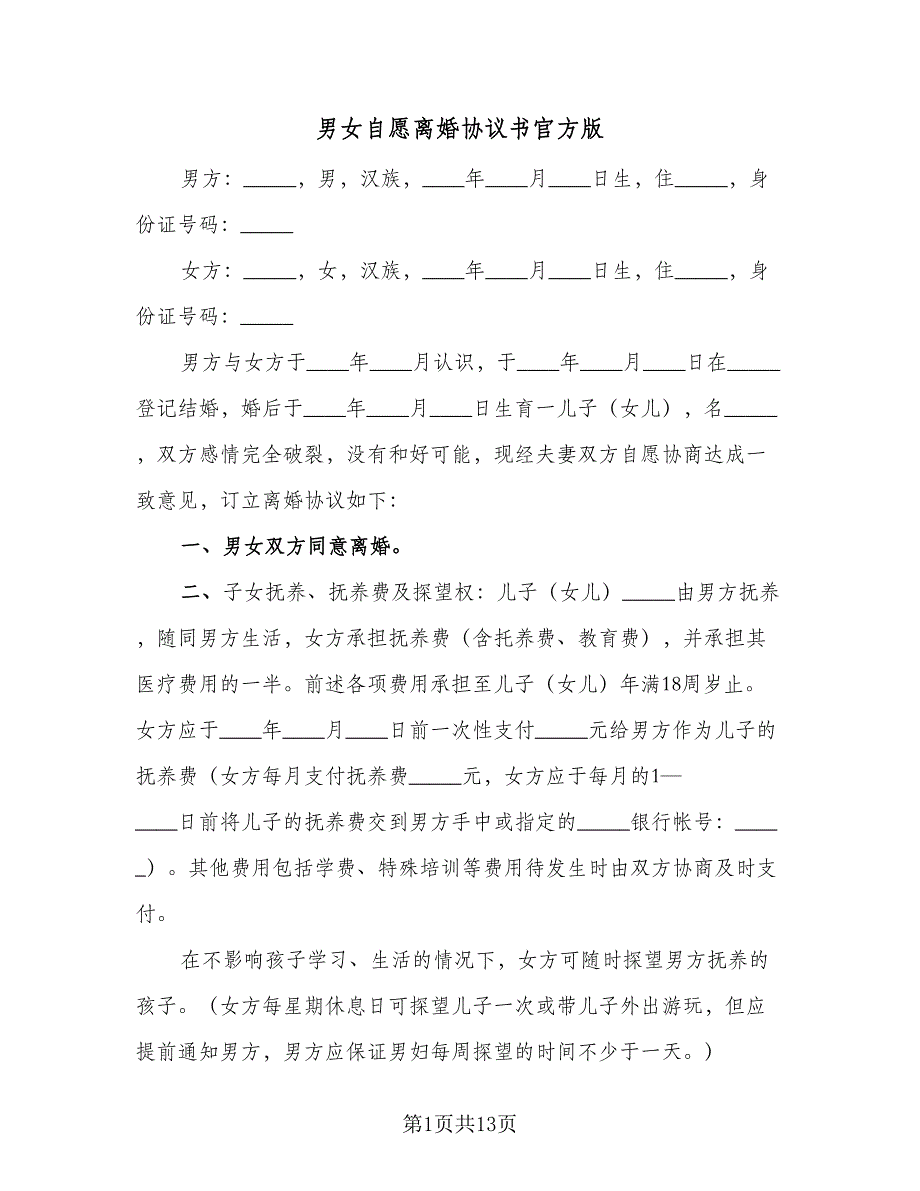 男女自愿离婚协议书官方版
男方：_____，男，汉族，____年____月____日生，住_____，身
份证号码：_____
女方：_____，女，汉族，____年____月____日生，住_____，身
份证号码：_____
男方与女方于____年____月认识，于____年____月____日在_____
登记结婚，婚后于____年____月____日生育一儿子（女儿），名_____
，双方感情完全破裂，没有和好可能，现经夫妻双方自愿协商达成一
致意见，订立离婚协议如下：
一、男女双方同意离婚。
二、子女抚养、抚养费及探望权：儿子（女儿）_____由男方抚养
，随同男方生活，女方承担抚养费（含托养费、教育费），并承担其
医疗费用的一半。前述各项费用承担至儿子（女儿）年满18周岁止。
女方应于____年____月____日前一次性支付_____元给男方作为儿子的
抚养费（女方每月支付抚养费_____元，女方应于每月的1—
____日前将儿子的抚养费交到男方手中或指定的_____银行帐号：____
_）。其他费用包括学费、特殊培训等费用待发生时由双方协商及时支
付。
在不影响孩子学习、生活的情况下，女方可随时探望男方抚养的
孩子。（女方每星期休息日可探望儿子一次或带儿子外出游玩，但应
提前通知男方，男方应保证男妇每周探望的时间不少于一天。）
第1页共13页